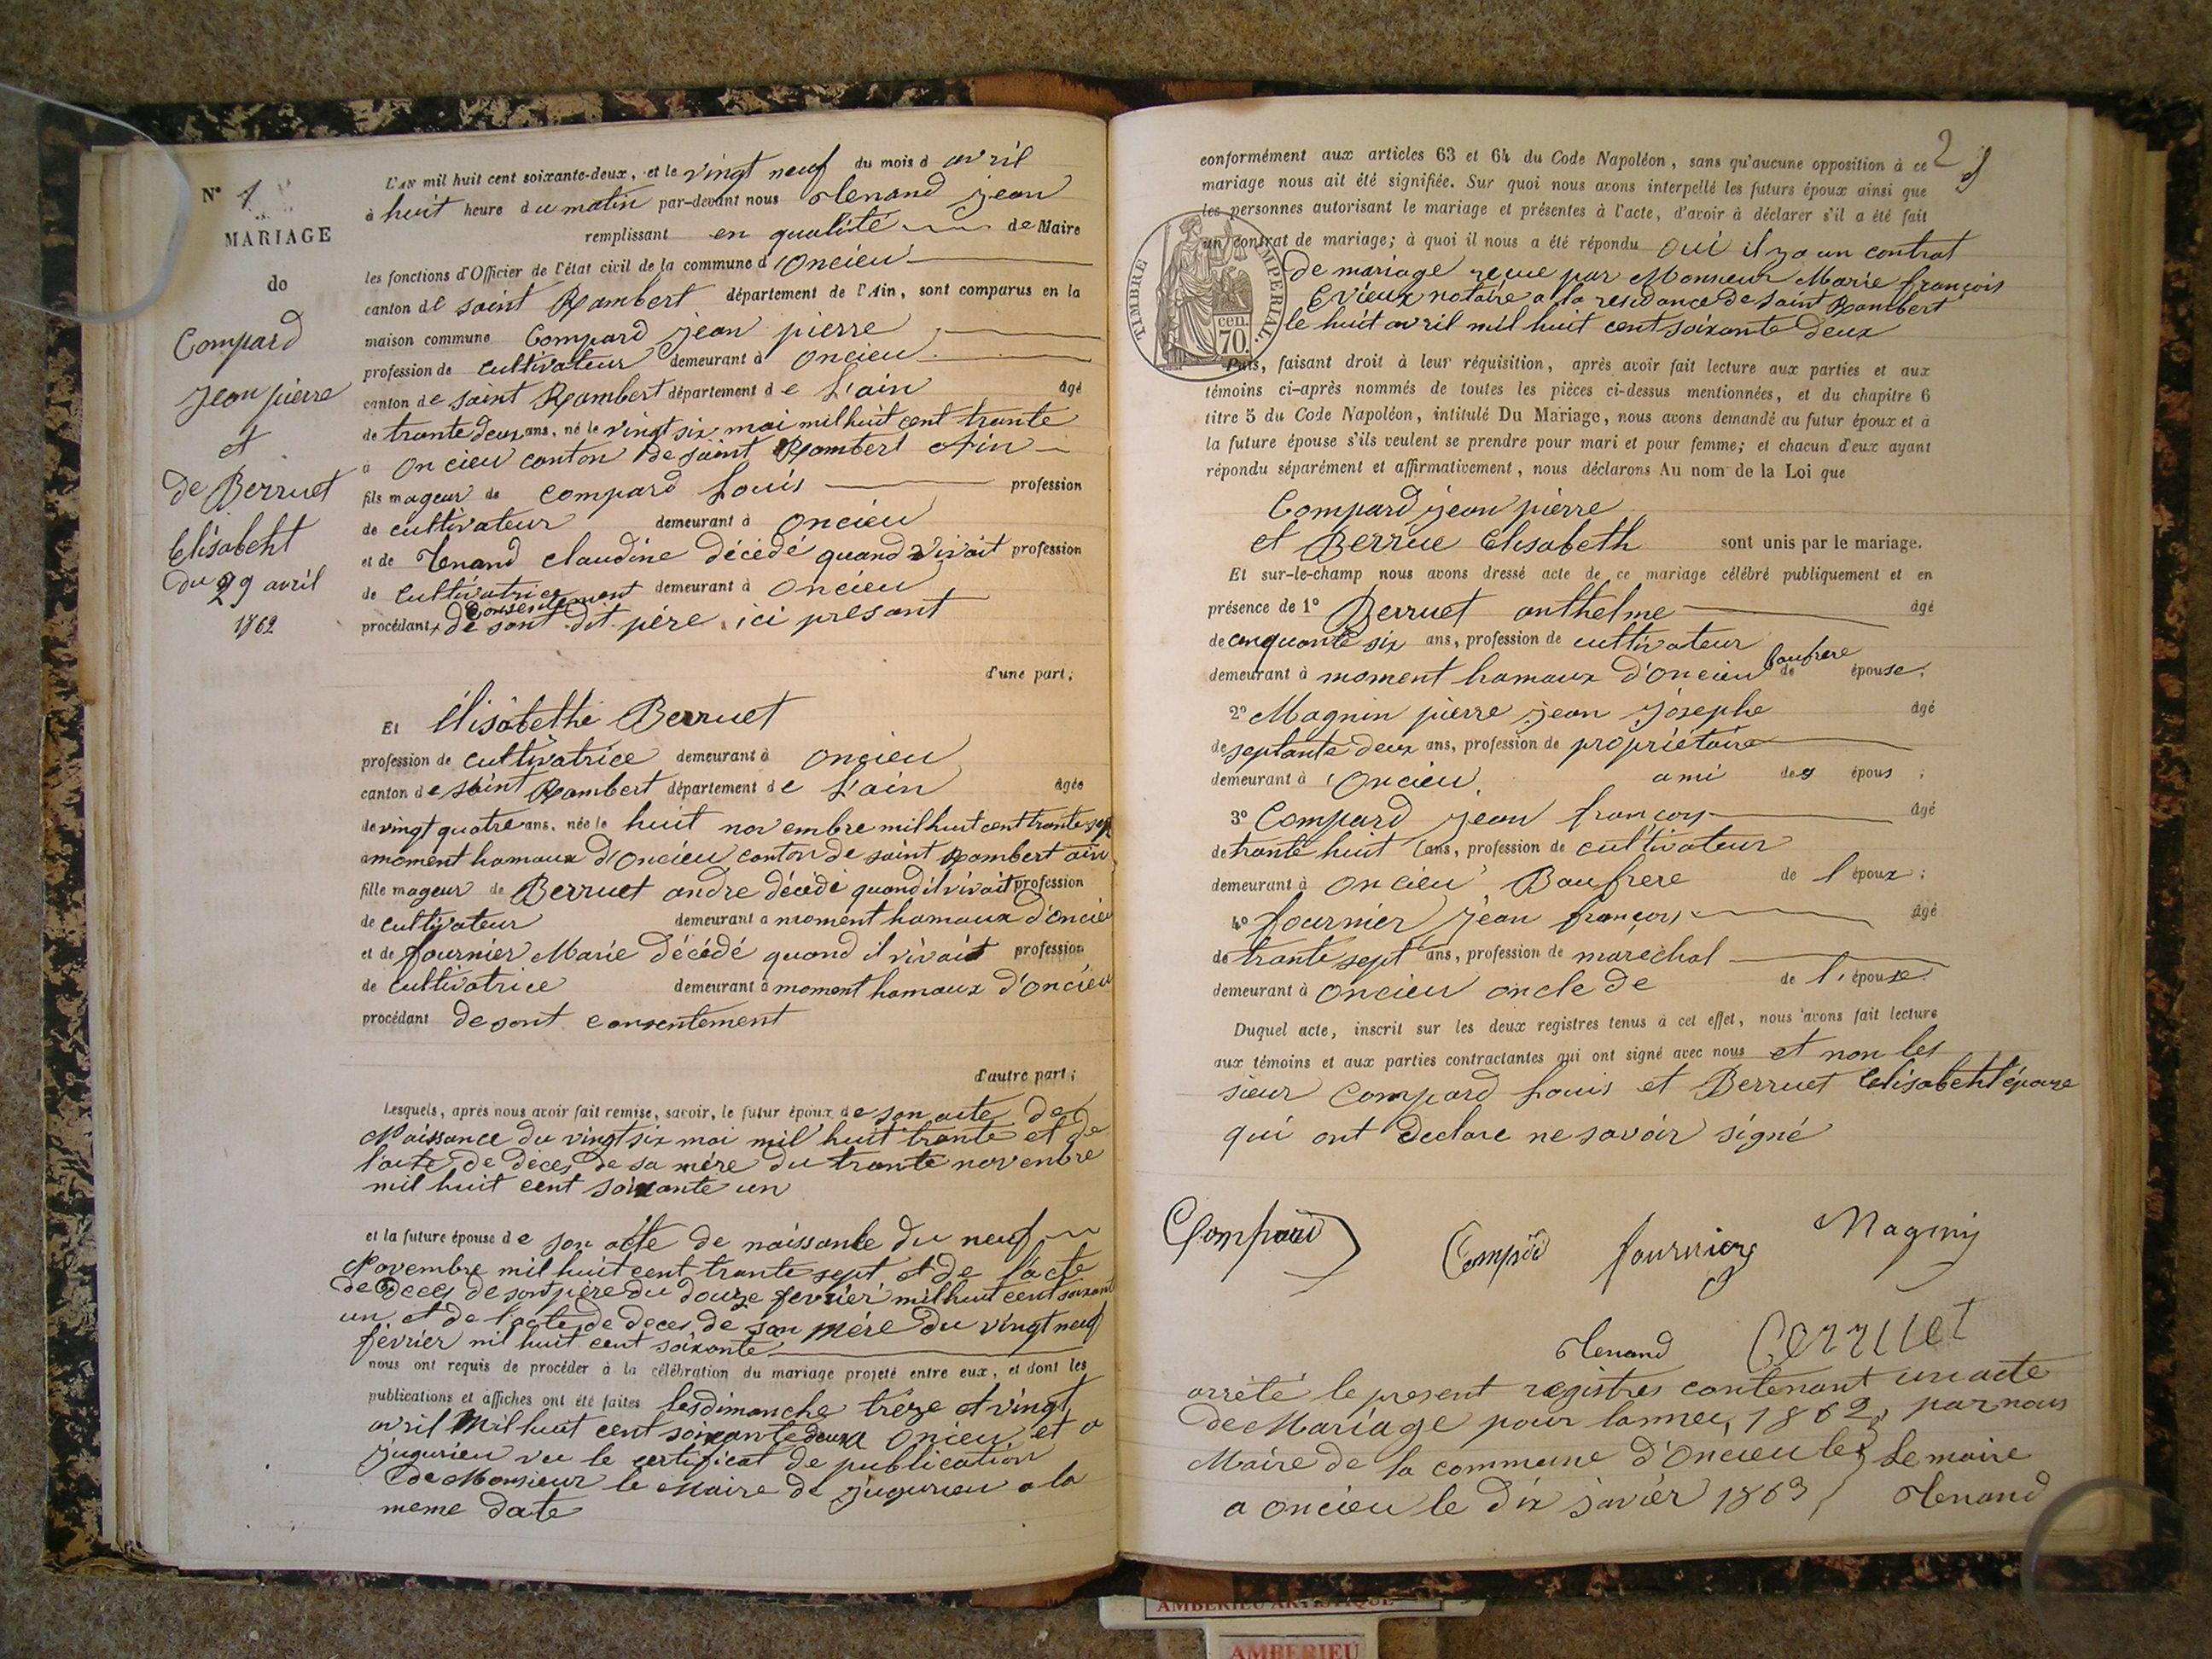 N° 1
MARIAGE
de
Compard
Jean pierre
et
de Berruet
Elisabeht
du 29 avril
1862
L'AN mil huit cent soixante-deux, et le vingt neuf du mois d avril
à huit heure du matin par-devant nous Tenand jean
remplissant en qualité de Maire
les fonctions d'Officier de l'état civil de la commune d'Oncieu
canton de saint Rambert département de l'Ain, sont comparus en la
maison commune Compard jean pierre
profession de cultivateur demeurant à oncieu
canton de saint Rambert département de L'ain âgé
de trante deux ans, né le vingt six mai mil huit cent trante
à oncieu canton de saint Rambert Ain
fils mageur de Compard Louis profession
de cultivateur demeurant à oncieu
et de Tenand claudine décédé quand vivait profession
de cultivatrice demeurant à oncieu
procédant de consentement sont dit père ici présant
d'une part;
Et Élisabethe Berruet
profession de cultivatrice demeurant à oncieu
canton de saint Rambert département de L'ain âgée
de vingt quatre ans, née le huit novembre mil huit cent trante sep
a moment hamaux d'Oncieu canton de saint Rambert ain
fille mageur de Berruet andre décédé quand il vivait profession
de cultivateur demeurant à moment hamaux d'oncieu
et de fournier Marie décédé quand il vivait profession
de cultivatrice demeurant à moment hamaux d'oncieu
procédant de sont consentement
d'autre part;
Lesquels, après nous avoir fait remise, savoir, le futur époux de son acte de
Naissance du vingt six mai mil huit trante et de
l'acte de déces de sa mère du trante novenbre
mil huit cent soixante un
et la future épouse de son acte de naissance du neuf
Novembre mil huit cent trante sept et de l'acte
de déces de sont père du douze fevrier mil huit cent soixant
un et de l'acte de deces de san mère du vingt neuf
février mil huit cent soixante
nous ont requis de procéder à la célébration du mariage projeté entre eux, et dont les
publications et affiches ont été faites les dimanche trèze et vingt
avril Mil huit cent soixante deux a Oncieu et a
jugurieu vu le certificat de publication
de Monsieur le Maire de jugurieu a la
meme date
2
conformément aux articles 63 et 64 du Code Napoléon, sans qu'aucune opposition à ce
mariage nous ait été signifiée. Sur quoi nous avons interpellé les futurs époux ainsi que
les personnes autorisant le mariage et présentes à l'acte, d'avoir à déclarer s'il a été fait
un contrat de mariage; à quoi il nous a été répondu oui il y a un contrat
de mariage reçue par Monsieur Marie françois
Evieux notaire a la residance de saint Rambert
le huit avril mil huit cent soixante deux
TIMBRE IMPERIAL
cen.
70.
Puis, faisant droit à leur réquisition, après avoir fait lecture aux parties et aux
témoins ci-après nommés de toutes les pièces ci-dessus mentionnées, et du chapitre 6
titre 5 du Code Napoléon, intitulé Du Mariage, nous avons demandé au futur époux et à
la future épouse s'ils veulent se prendre pour mari et pour femme; et chacun d'eux ayant
répondu séparément et affirmativement, nous déclarons Au nom de la Loi que
Compard jean pierre
et Berrue Elisabeth sont unis par le mariage.
Et sur-le-champ nous avons dressé acte de ce mariage célébré publiquement et en
présence de 1° Berruet anthelme âgé
de cinquante six ans, profession de cultivateur
demeurant à moment hamaux d'oncieu baufrere de épouse;
2° Magnin pierre jean josephe âgé
de septante deux ans, profession de propriétaire
demeurant à Oncieu ami des épous;
3° Compard jean françois âgé
de trante huit ans, profession de cultivateur
demeurant à oncieu Baufrere de l'époux;
4° fournier jean françois âgé
de trante sept ans, profession de maréchal
demeurant à oncieu oncle de de l'épouse.
Duquel acte, inscrit sur les deux registres tenus à cet effet, nous avons fait lecture
aux témoins et aux parties contractantes qui ont signé avec nous et non les
sieur Compard Louis et Berruet Elisabeht l'épouse
qui ont declare ne savoir signé
Compard Compard fournier Magnin
Tenand Berruet
arrèté le present registres contenant un acte
de Mariage pour lannee, 1862, par nous
Maire de la commune d'Oncieu le maire
a oncieu le dix javier 1863 Tenand
AMBERIEU ARTISTIQUE
AMBERIEU